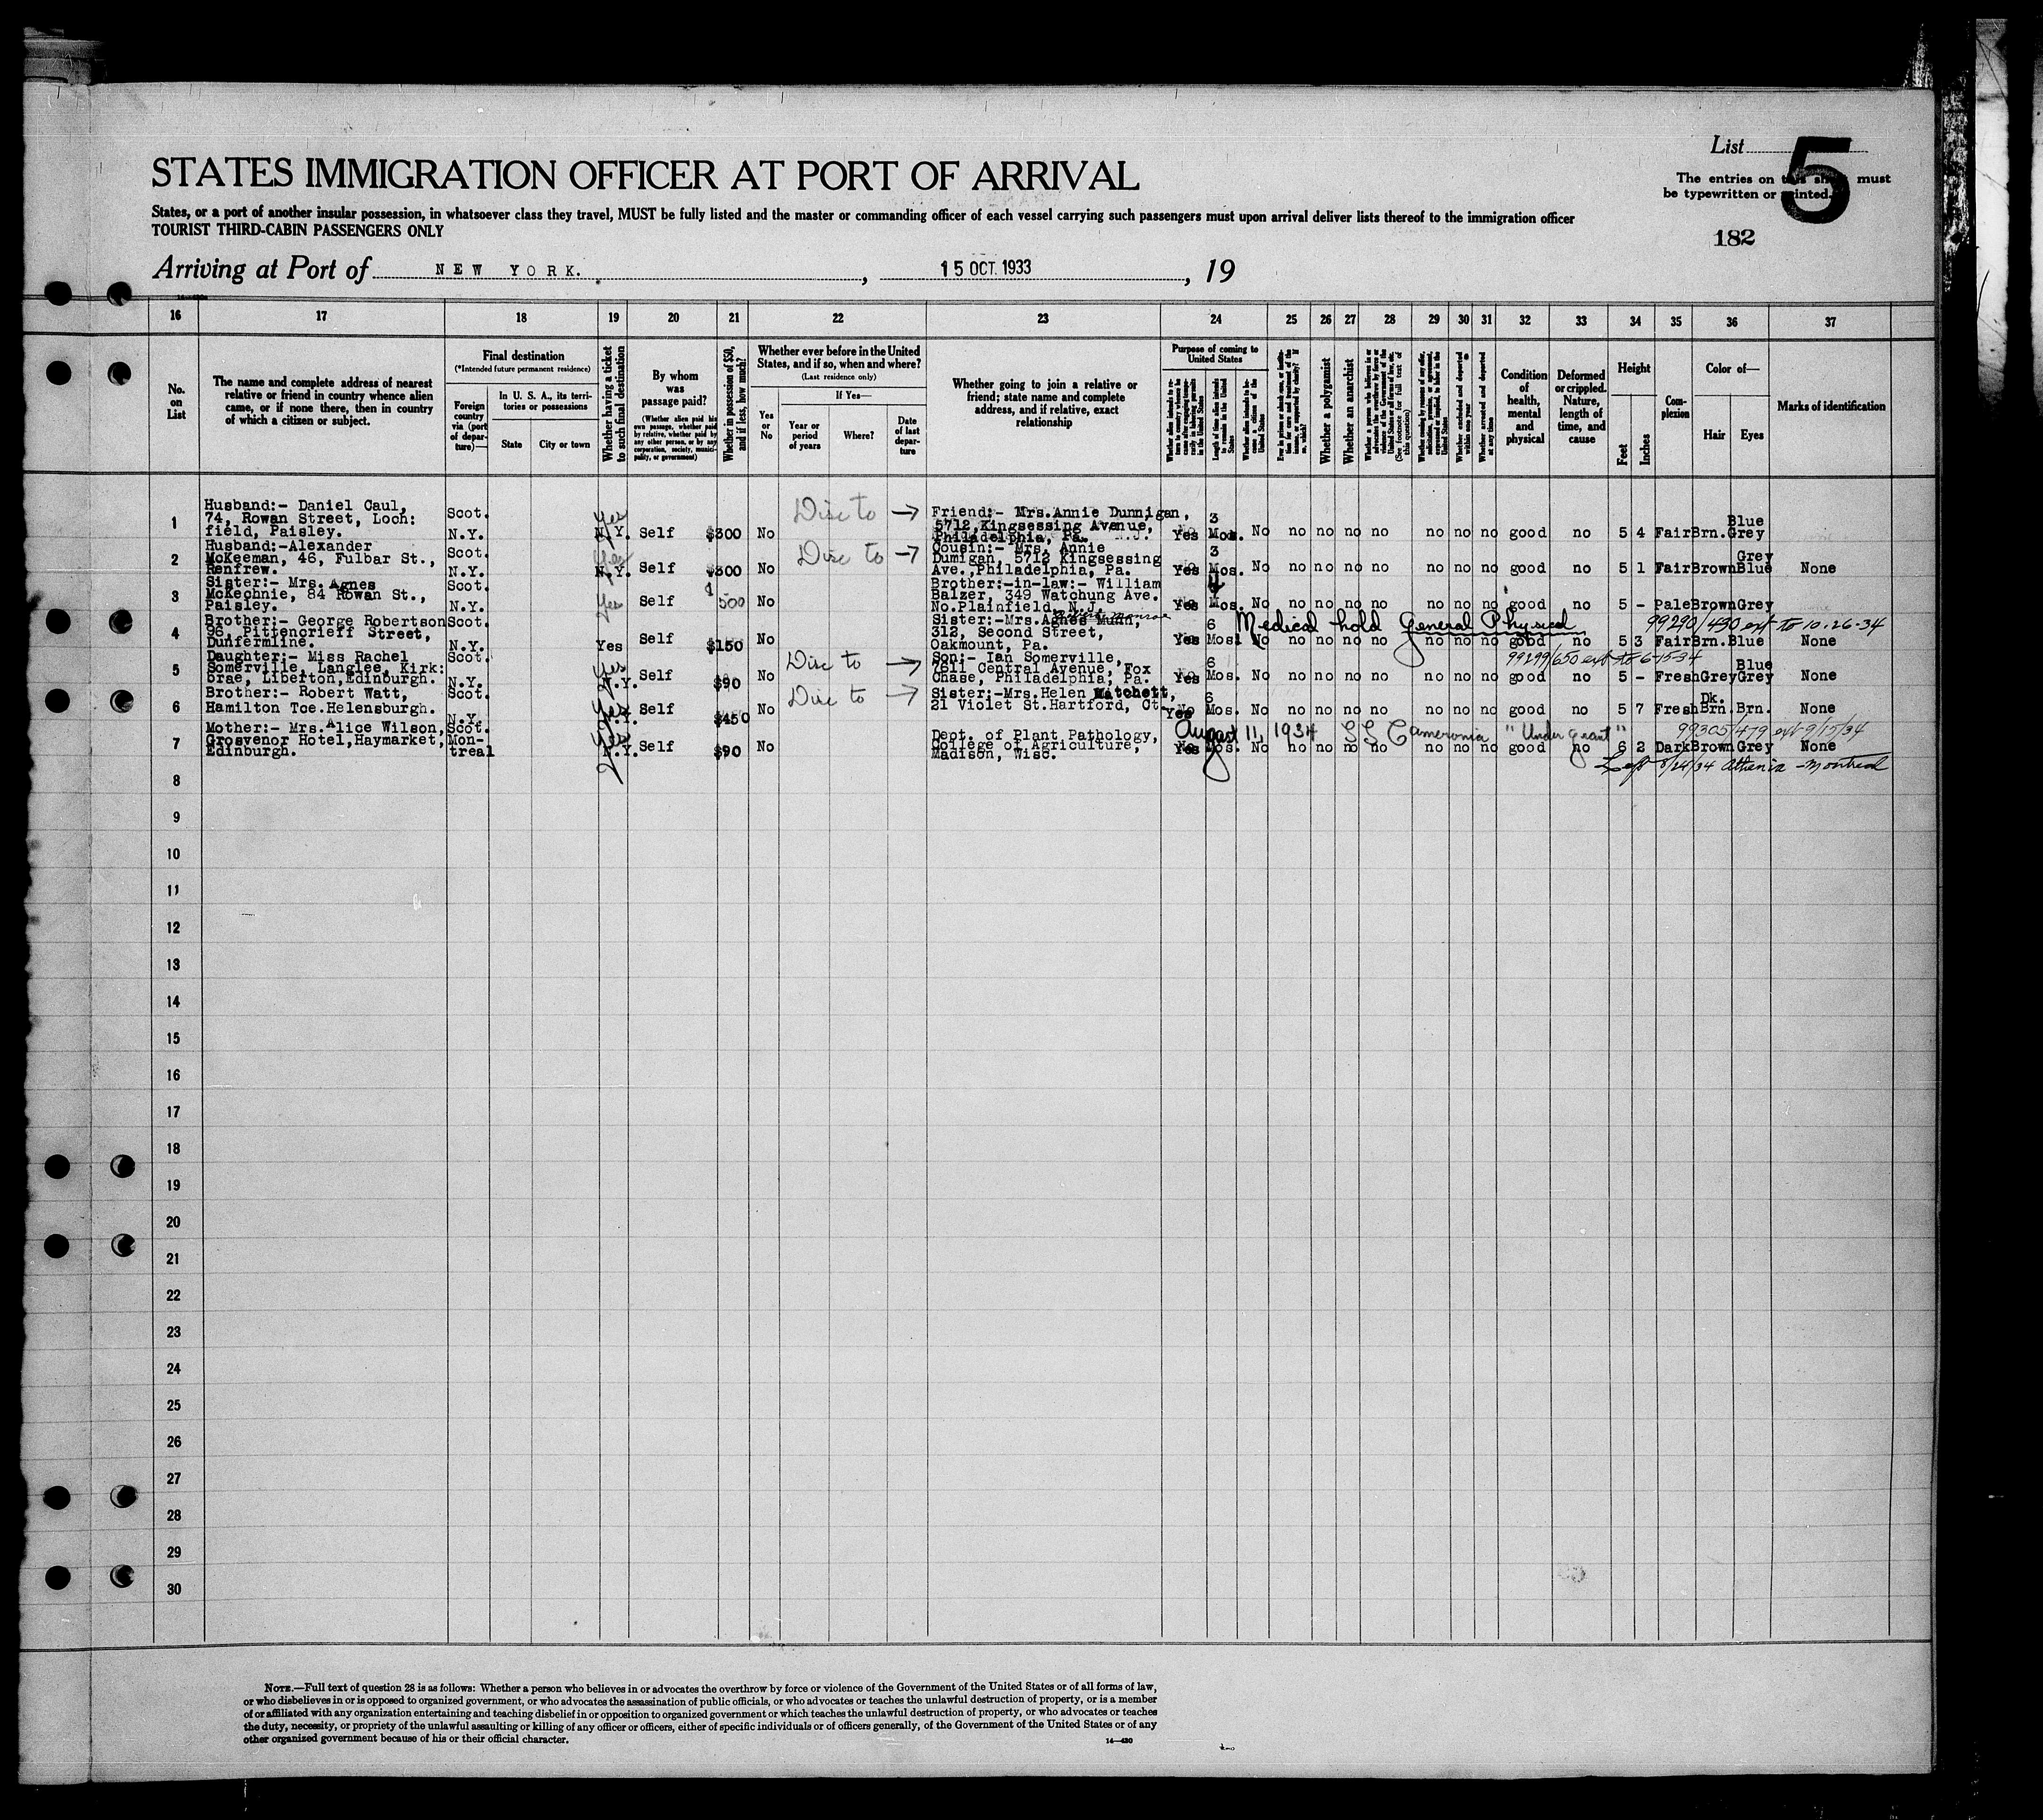 List 5
STATES IMMIGRATION OFFICER AT PORT OF ARRIVAL
The entries on this sheet must
be typewritten or printed.
States, or a port of another insular possession, in whatsoever class they travel, MUST be fully listed and the master or commanding officer of each vessel carrying such passengers must upon arrival deliver lists thereof to the immigration officer
TOURIST THIRD-CABIN PASSENGERS ONLY
182
Arriving at Port of NEW YORK. , 15 OCT. 1933 , 19
16 17 18 19 20 21 22 23 24 25 26 27 28 29 30 31 32 33 34 35 36 37
No. on List
The name and complete address of nearest relative or friend in country whence alien came, or if none there, then in country of which a citizen or subject.
Final destination
(*Intended future permanent residence)
Foreign country via (port of departure)—
In U. S. A., its territories or possessions
State City or town
Whether having a ticket to such final destination
By whom was passage paid?
(Whether alien paid his own passage, whether paid by relative, whether paid by any other person, or by any corporation, society, municipality, or government)
Whether in possession of $50, and if less, how much?
Whether ever before in the United States, and if so, when and where?
(Last residence only)
Yes or No
If Yes—
Year or period of years
Where?
Date of last departure
Whether going to join a relative or friend; state name and complete address, and if relative, exact relationship
Purpose of coming to United States
Length of time alien intends to remain in the United States
Whether alien intends to become a citizen of the United States
Whether a polygamist
Whether an anarchist
Condition of health, mental and physical
Deformed or crippled. Nature, length of time, and cause
Height
Feet Inches
Complexion
Color of—
Hair Eyes
Marks of identification
1 Husband:- Daniel Caul, 74, Rowan Street, Loch: field, Paisley. Scot. N.Y. Yes N.Y. Self $300 No Disc to → Friend:- Mrs.Annie Dunnigan, 5712,Kingsessing Avenue, Philadelphia, Pa. Yes 3 Mos. No no no no no no no no good no 5 4 Fair Brn. Blue Grey
2 Husband:-Alexander McKeeman, 46, Fulbar St., Renfrew. Scot. N.Y. Yes N.Y. Self $300 No Disc to → Cousin:- Mrs. Annie Dumigan, 5712 Kingsessing Ave.,Philadelphia, Pa. Yes 3 Mos. No no no no no no no no good no 5 1 Fair Brown Grey Blue None
3 Sister:- Mrs. Agnes McKechnie, 84 Rowan St., Paisley. Scot. N.Y. Yes Self 500 No Brother:-in-law:- William Balzer, 349 Watchung Ave. No.Plainfield, N.J. Yes 4 Mos. No no no no no no no no good no 5 - Pale Brown Grey
4 Brother:- George Robertson 96, Pittencrieff Street, Dunfermline. Scot. N.Y. Yes Self $150 No Sister:-Mrs.Agnes Munn, 312, Second Street, Oakmount, Pa. Yes 6 Mos. no no no no no no no good no 5 3 Fair Brn. Blue None
Medical hold General Physical
99290/490 ext to 10-26-34
5 Daughter:- Miss Rachel Somerville, Langlee, Kirk: brae, Liberton,Edinburgh. Scot. N.Y. Yes N.Y. Self $90 No Disc to → Son:- Ian Somerville, 7611 Central Avenue, Fox Chase, Philadelphia, Pa. Yes 6 Mos. No no no no no no no no good no 5 - Fresh Grey Blue Grey None
99299/650 ext to 6-15-34
6 Brother:- Robert Watt, Hamilton Tce.Helensburgh. Scot. N.Y. Yes Self $450 No Disc to → Sister:-Mrs.Helen Matchett, 21 Violet St.Hartford, Ct. Yes 6 Mos. No no no no no no no no good no 5 7 Fresh Dk. Brn. Brn. None
7 Mother:- Mrs.Alice Wilson, Grosvenor Hotel,Haymarket, Edinburgh. Scot. Mon- treal Yes N.Y. Self $90 No Dept. of Plant Pathology, College of Agriculture, Madison, Wisc. Yes Mos. No no no no no no no no good no 6 2 Dark Brown Grey None
August 11, 1934 SS Cameronia "Under grant"
99305/479 ext 9/15/34
Left 8/24/34 Athenia - Montreal
8
9
10
11
12
13
14
15
16
17
18
19
20
21
22
23
24
25
26
27
28
29
30
NOTE.—Full text of question 28 is as follows: Whether a person who believes in or advocates the overthrow by force or violence of the Government of the United States or of all forms of law,
or who disbelieves in or is opposed to organized government, or who advocates the assassination of public officials, or who advocates or teaches the unlawful destruction of property, or is a member
of or affiliated with any organization entertaining and teaching disbelief in or opposition to organized government or which teaches the unlawful destruction of property, or who advocates or teaches
the duty, necessity, or propriety of the unlawful assaulting or killing of any officer or officers, either of specific individuals or of officers generally, of the Government of the United States or of any
other organized government because of his or their official character.
14—430